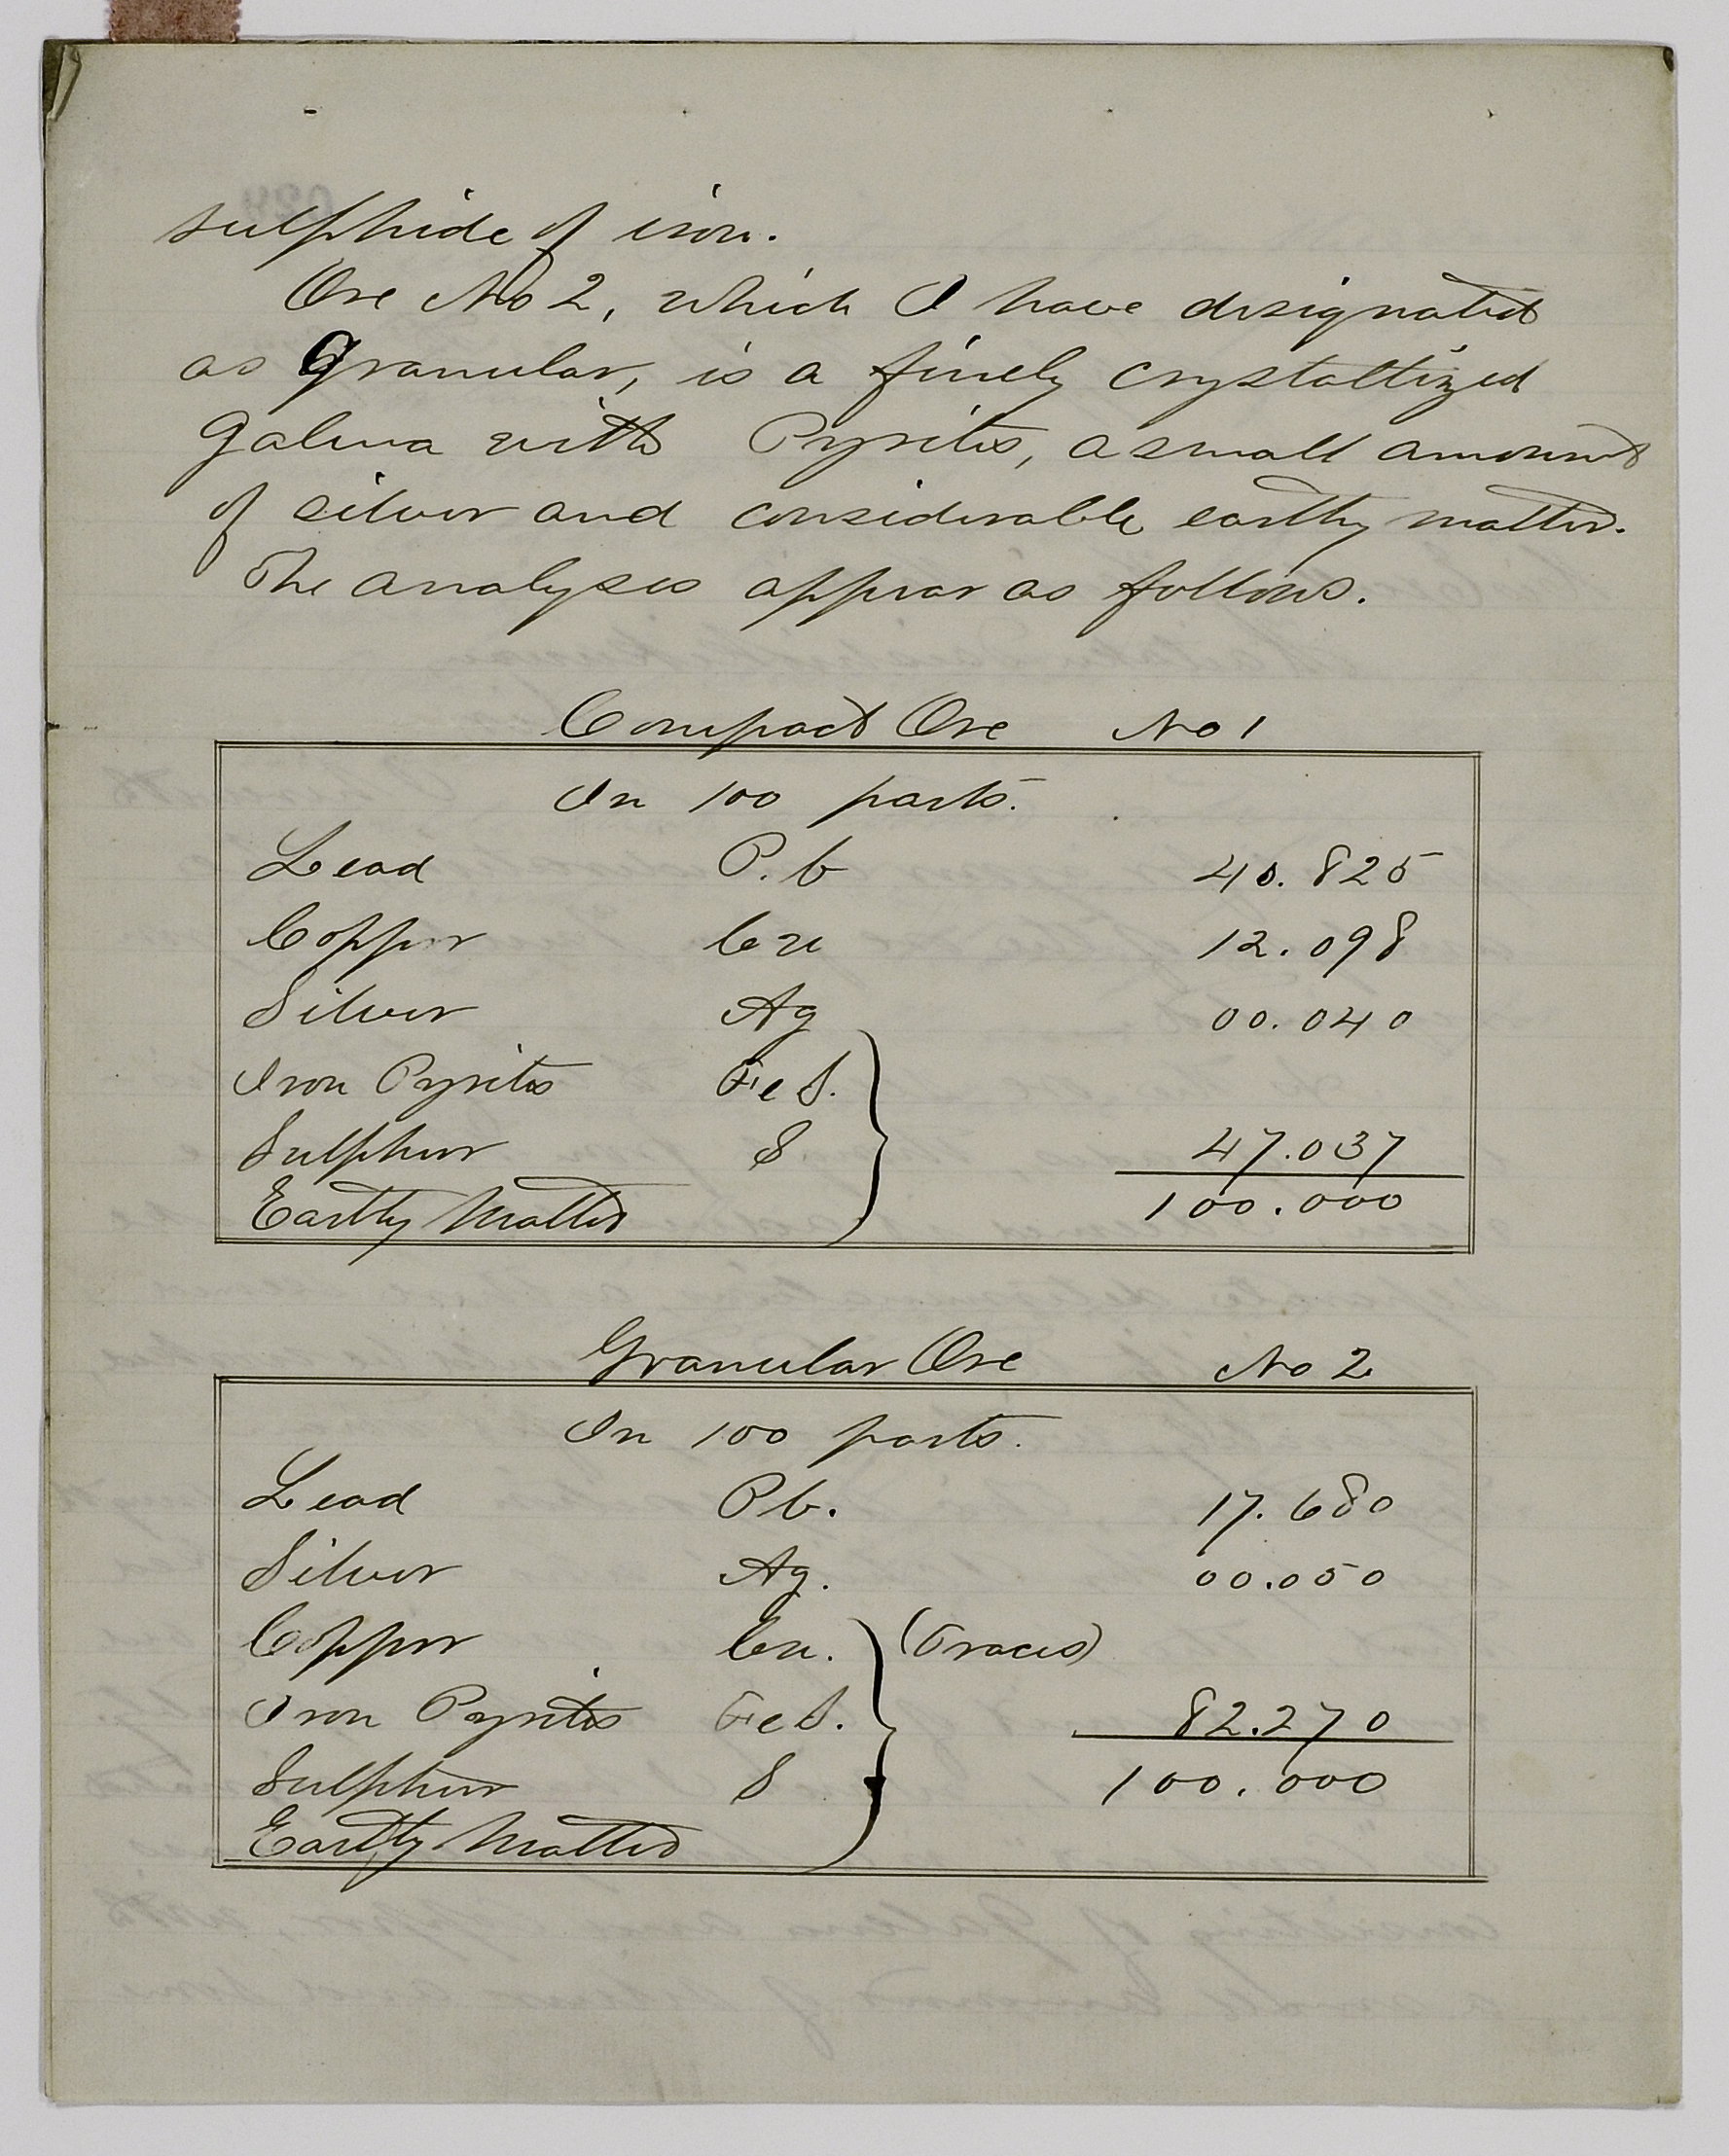 sulphide of iron.
Ore No 2, which I have designated
as Granular, is a finely crystallized
Galena with Pyrites, a small amount
of silver and considerable earthy matter.
The analyses appear as follows.
Compact Ore No 1
In 100 parts.
Lead P.b 40.825
Copper Cu 12.098
Silver Ag 00.040
Iron Pyrites Fe S.
Sulphur S 47.037
Earthy Matter 100.000
Granular Ore No 2
In 100 parts.
Lead Pb. 17.680
Silver Ag. 00.050
Copper Cu. (Traces)
Iron Pyrites Fe S. 82.270
Sulphur S 100.000
Earthy Matter